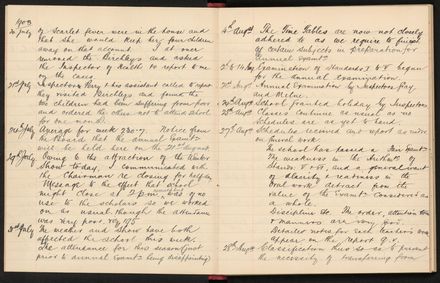 1903
20 July of Scarlet fever were in the house and
that she would keep her four children
away on that account. I at once
removed the Berthleys and asked
the Inspector of Health to report to me
on the cases.
21st July Inspectors Kerry & his assistant called to report
they visited Berthleys and found
his children had been suffering from
and ordered the others not to attend school
for one month.
24th July Average for week 230.7. Notice from
the Board that the annual Exam
will be held here on the 21st August
29th July Owing to the attraction of the Winter
Show today, I communicated with
the Chairman re closing for half day
Message to the effect that school
might close at 2 p.m. was of no
use to the scholars so we worked
on as usual though the attendance
was very poor. viz 195
30th July The weather and Show have both
affected the school this week,
the attendance for this season (just
prior to annual Exam) being disappointing
4th Augt The Time Tables are now not closely
adhered to as we require to finish
up certain subjects in preparation for
Annual Exam
Examination of Standards
for the annual Examination.
21st Augt Annual Examination by Inspectors Fay
and Milne.
24th Augt School granted holiday by Inspectors
25th Augt Classes continue as usual as no
Schedules are as yet to hand.
27th Augt Schedules received and report as under
on general work.
The school has passed a fair Exam
The weakness in the Arith of
Stands V & VI, and a general want
of clearness & readiness in the
oral work detract from the
value of the Exam considered as
a whole.
Discipline etc The order, attention
& manners are very good.
Detailed notes for each teacher's
appear on the report q.v.
28th Augt Classification this so as to prevent
the necessity of transferring from